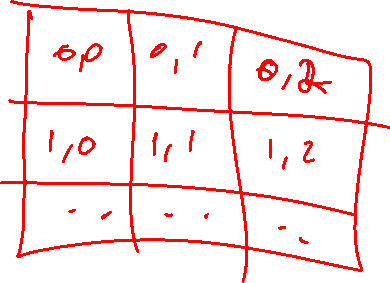 0,0 0,1 0,2
1,0 1,1 1,2
.. .. ..